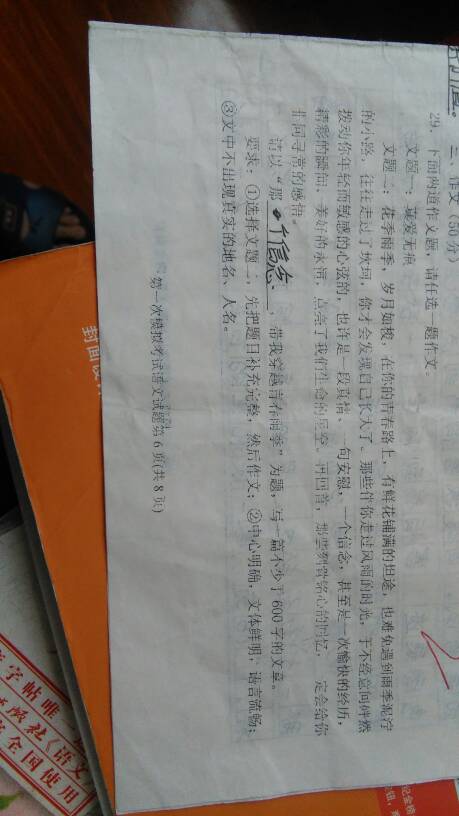 三、作文（50分）
29. 下面两道作文题，请任选一题作文。
文题一：蓝爱无痕
文题二：花季雨季，岁月如梭，在你的青春路上，有鲜花铺满的坦途，也难免遇到雨季泥泞
的小路，往往走过了坎坷，你才会发现自己长大了。那些伴你走过风雨的时光，于不经意间怦然
拨动你年轻而敏感的心弦的，也许是一段真情、一句安慰，一个信念，甚至是一次愉快的经历，
精彩的瞬间，美好的永恒，点亮了我们生命的星空。再回首，那些刻骨铭心的回忆，一定会给你
非同寻常的感悟。
请以“那个信念，带我穿越青春雨季”为题，写一篇不少于600字的文章。
要求：①选择文题二，先把题目补充完整，然后作文；②中心明确，文体鲜明，语言流畅；
③文中不出现真实的地名、人名。
第一次模拟考试语文试题第6页(共8页)
封面设
字帖唯一
《语文
全国使用
纪金榜